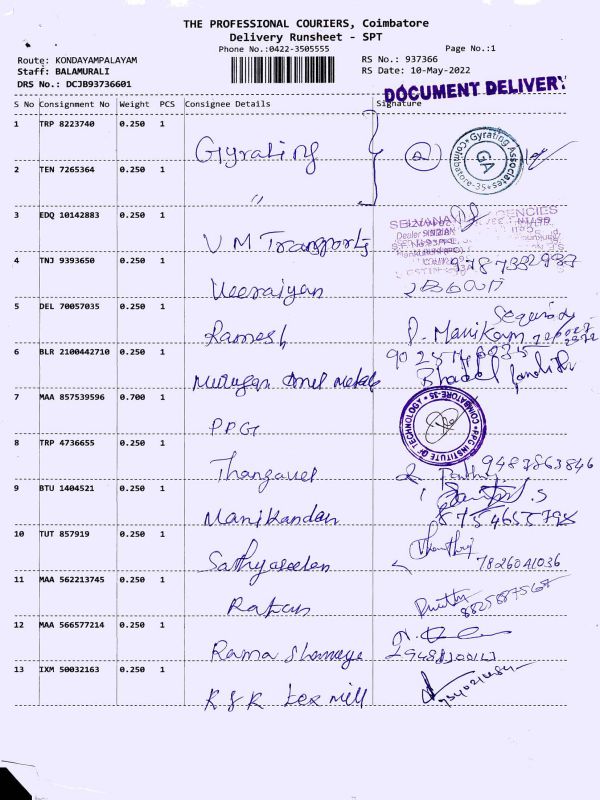 THE PROFESSIONAL COURIERS, Coimbatore
Delivery Runsheet - SPT
Phone No.:0422-3505555
Page No.:1
Route: KONDAYAMPALAYAM
RS No.: 937366
Staff: BALAMURALI
RS Date: 10-May-2022
DRS No.: DCJB93736601
DOCUMENT DELIVERY
S No Consignment No Weight PCS Consignee Details Signature
1 TRP 8223740 0.250 1 Gyrating 2
Gyrating Associates Coimbatore-35 GA
2 TEN 7265364 0.250 1 "
3 EDQ 10142883 0.250 1 V M Transports
SELVANAYAKI AGENCIES
Dealer
4 TNJ 9393650 0.250 1 Veeraiyan
5 DEL 70057035 0.250 1 Ramesh P. Manikam
Security
6 BLR 2100442710 0.250 1 Murugan metals
7 MAA 857539596 0.700 1 PPG
PPG INSTITUTE OF TECHNOLOGY COIMBATORE-35
8 TRP 4736655 0.250 1 Thangavel 9487863846
9 BTU 1404521 0.250 1 Manikandan
10 TUT 857919 0.250 1 Sathyaseelan 7826041036
11 MAA 562213745 0.250 1
12 MAA 566577214 0.250 1 Rama
13 IXM 50032163 0.250 1 K S R tex mill